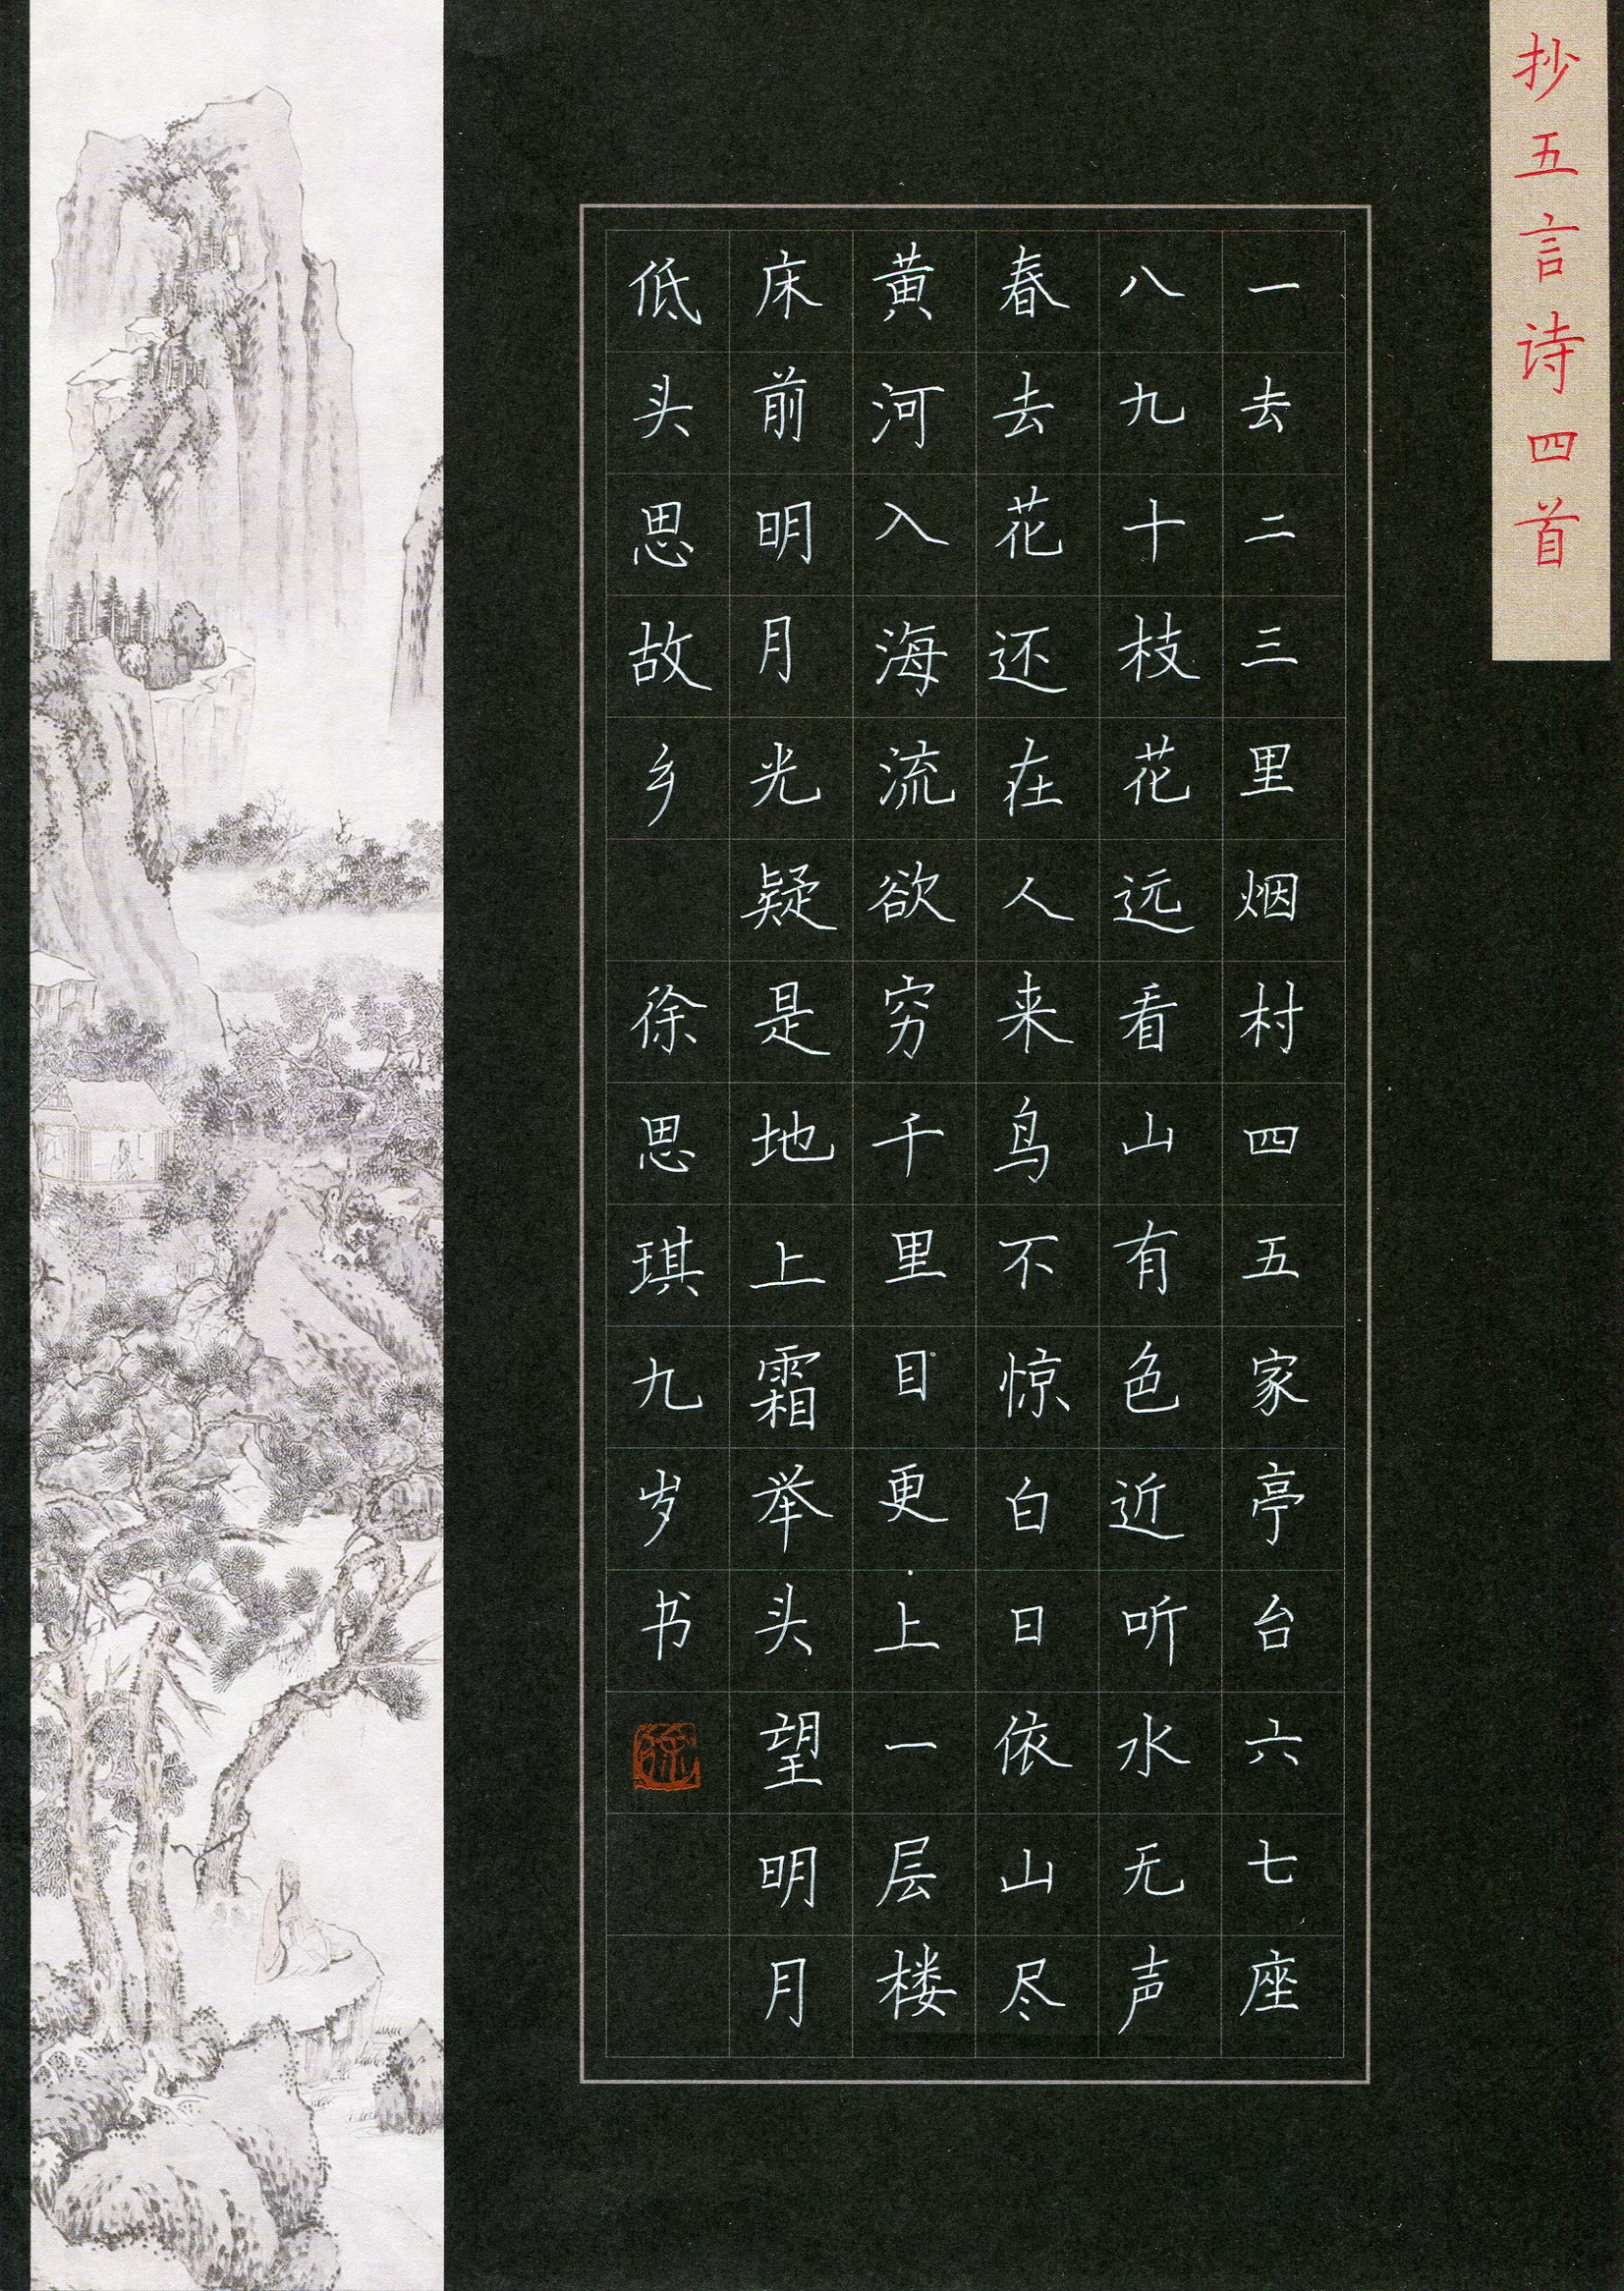 抄五言诗四首
一去二三里烟村四五家亭台六七座
八九十枝花远看山有色近听水无声
春去花还在人来鸟不惊白日依山尽
黄河入海流欲穷千里目更上一层楼
床前明月光疑是地上霜举头望明月
低头思故乡 徐思琪九岁书
徐